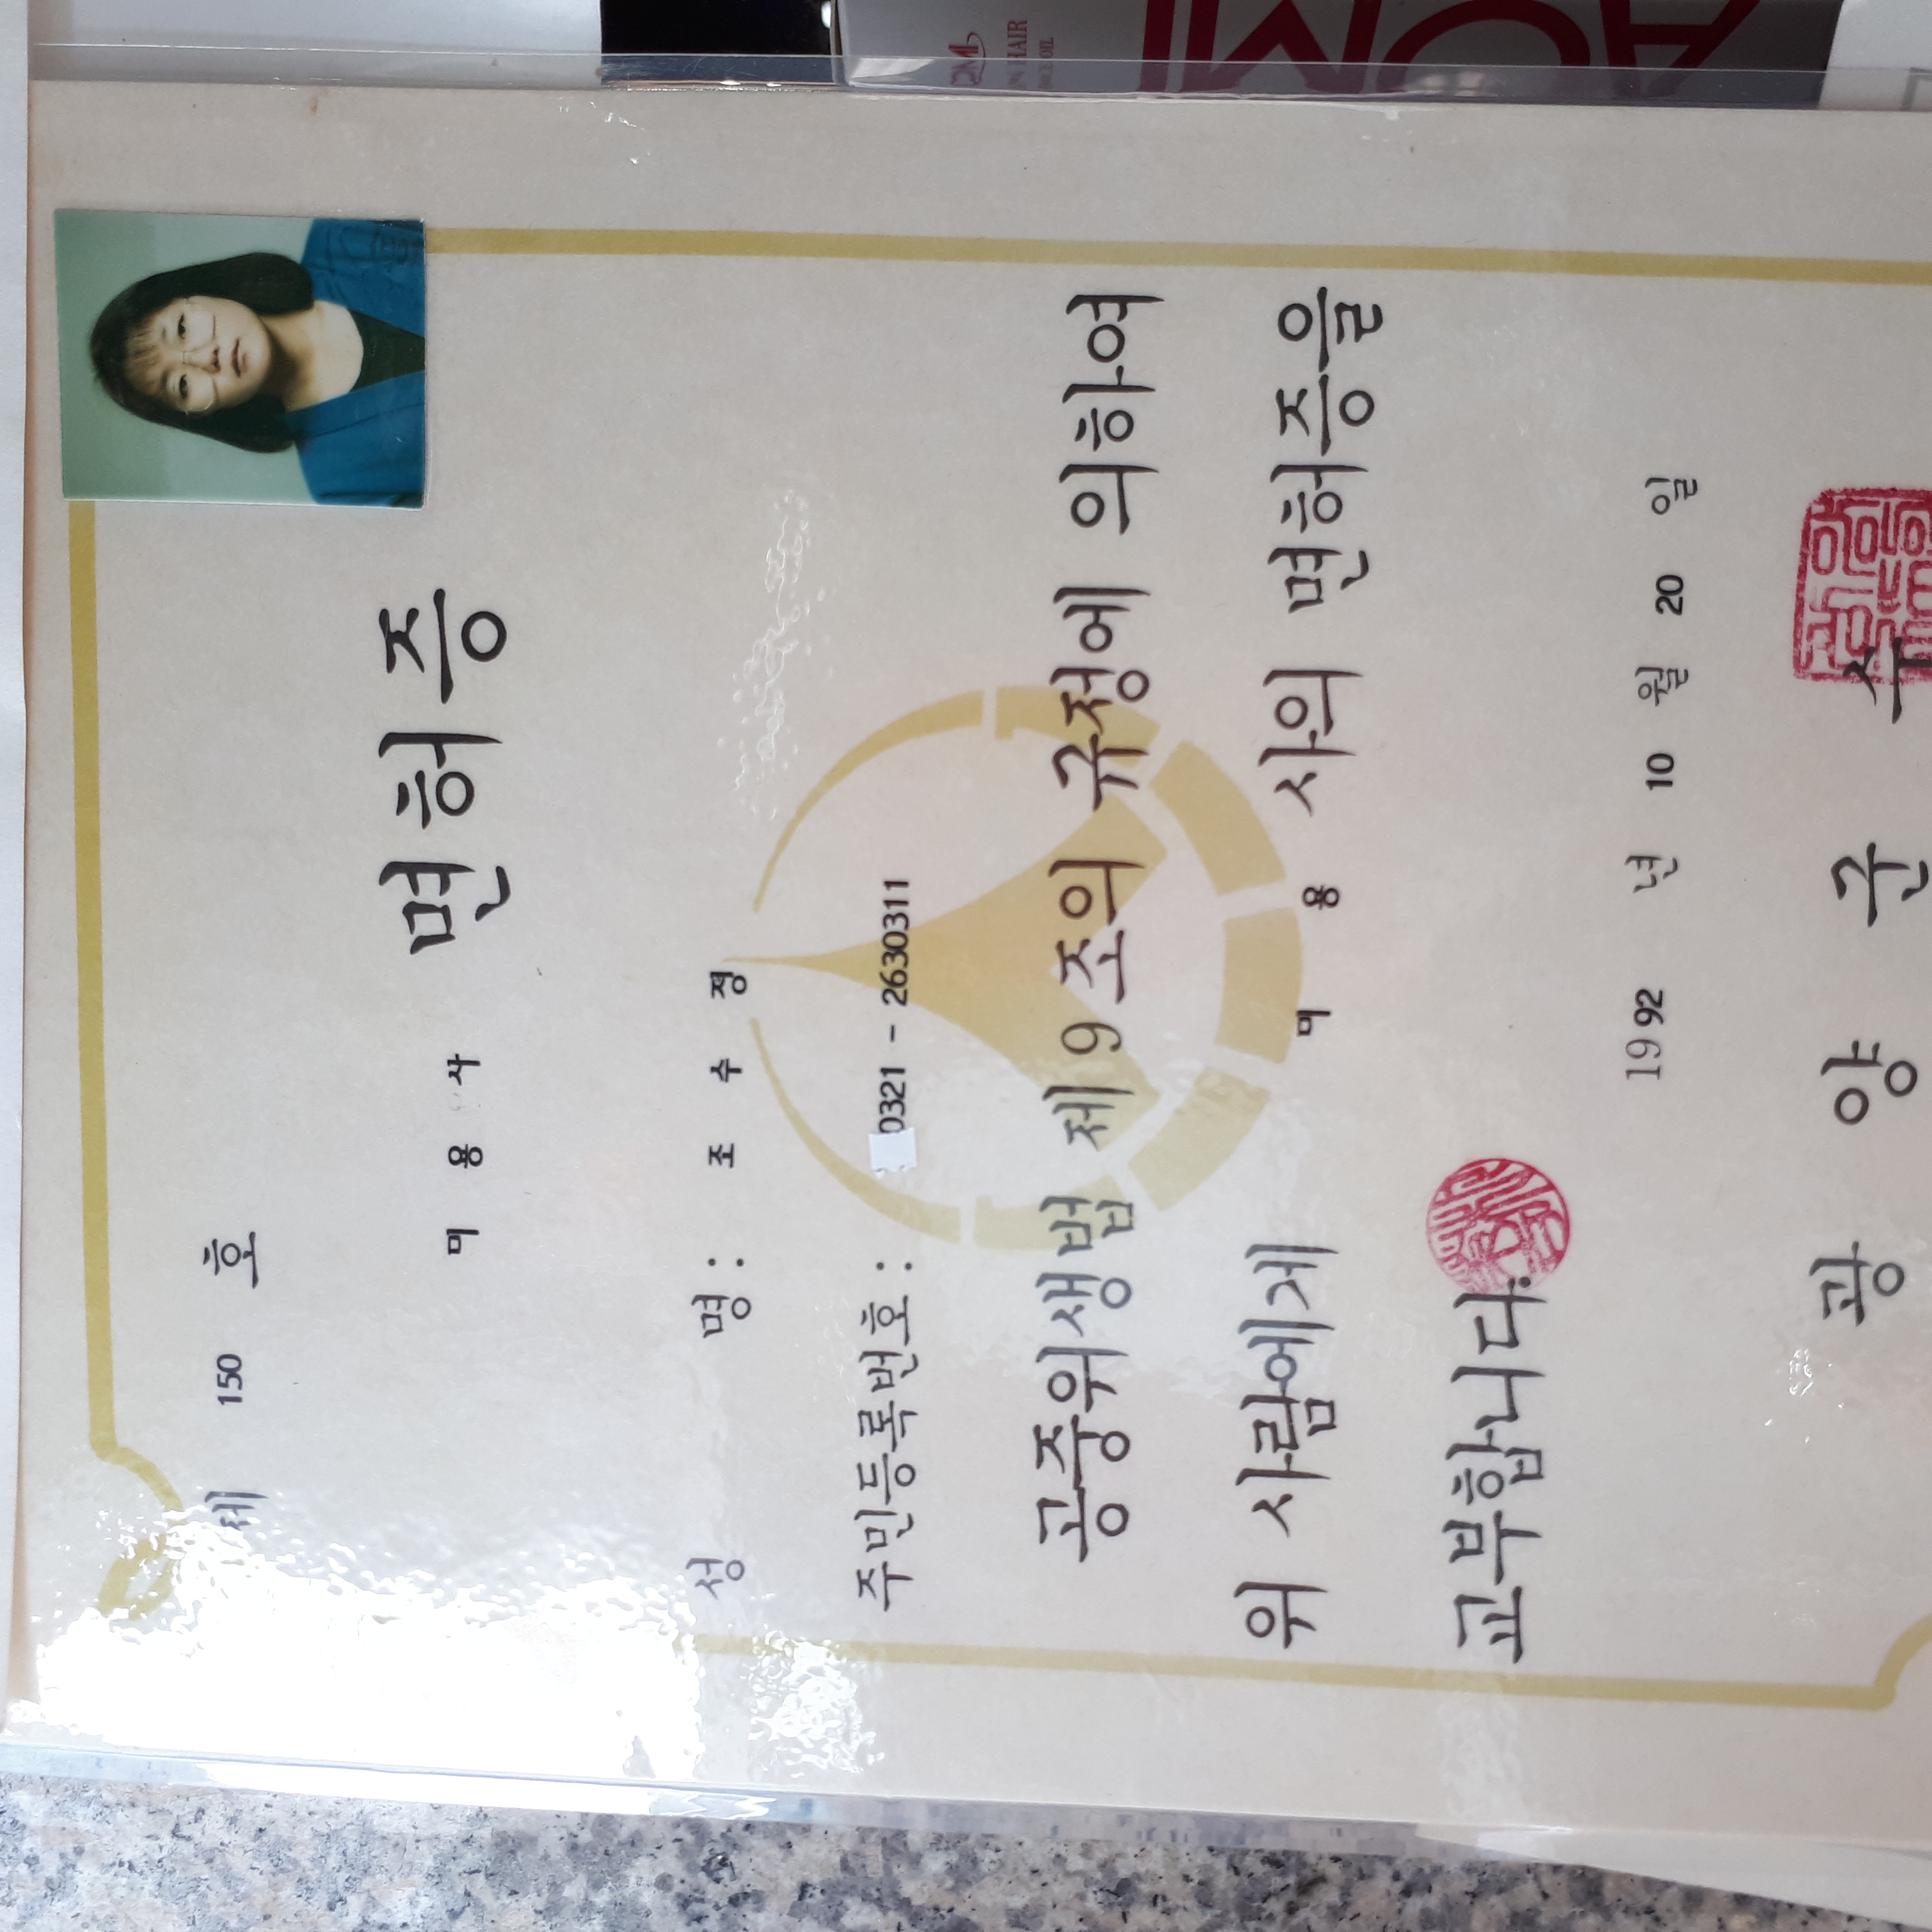 제 150 호
미 용 사 면허증
성 명 : 조 수 정
주민등록번호 : 0321 - 2630311
공중위생법 제9조의 규정에 의하여
위 사람에게 미 용 사의 면허증을
교부합니다.
1992 년 10 월 20 일
광 양 군 수
HAIR
OIL